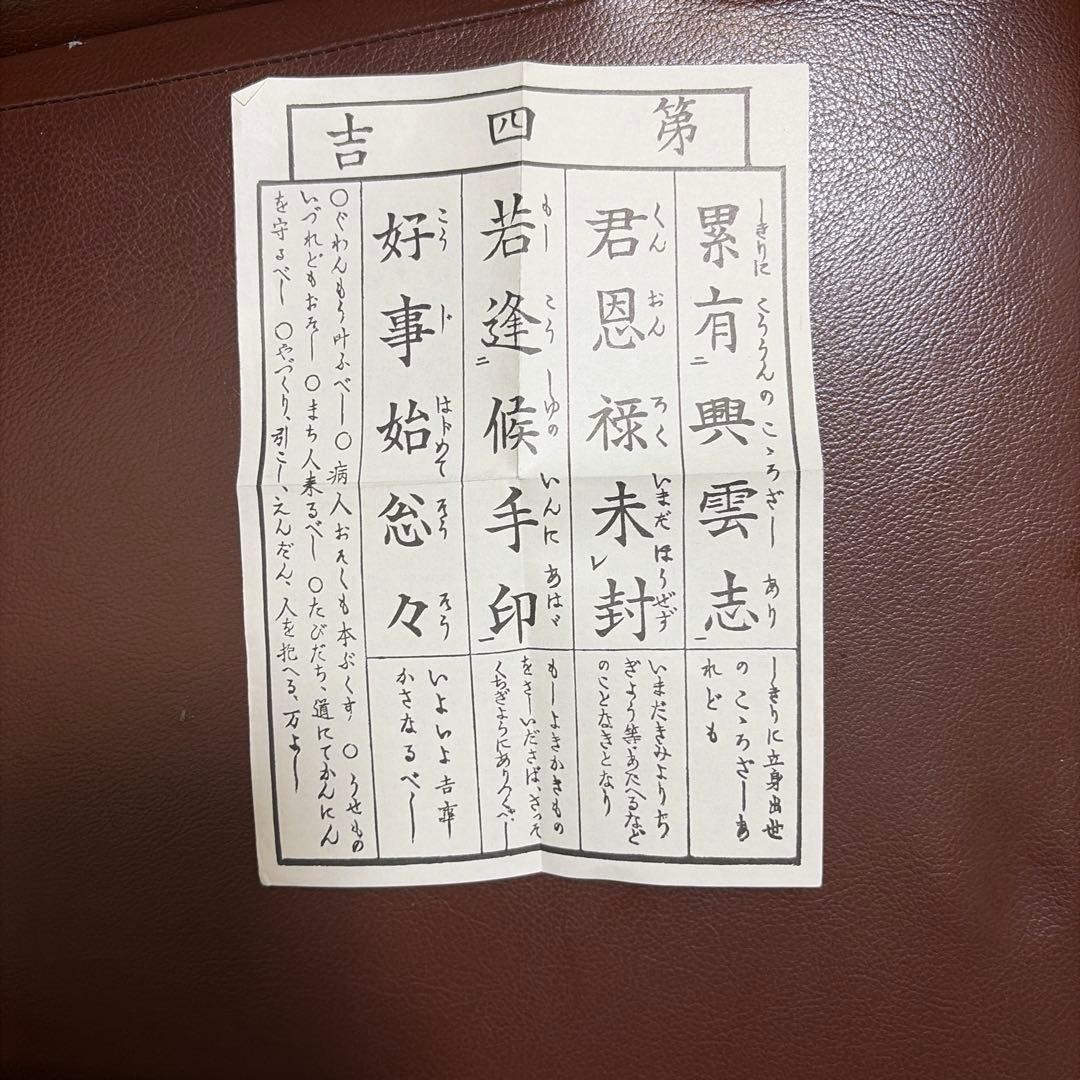 第四吉
累有興雲志
しきりに こううんの こゝろざし あり
二 一
しきりに立身出世
のこゝろざしあ
れども
君恩禄未封
くん おん ろく いまだ ほうぜず
レ
いまだきみよりち
ぎよう等あたへるなど
のことなきとなり
若逢候手印
もし こう しゆの いんに あはゞ
二 一
もしよきかきもの
をさしいださば、さつそ
くちぎようにありつくべし
好事始怱々
こう じ はじめて そう そう
いよいよ吉事
かさなるべし
○ぐわんもう叶ふべし○病人おそくも本ぷくす ○うせもの
いづれどもおそし ○まち人来るべし ○たびだち、道にてかんにん
を守るべし ○やづくり、引こし、えんだん、人を抱へる、万よし